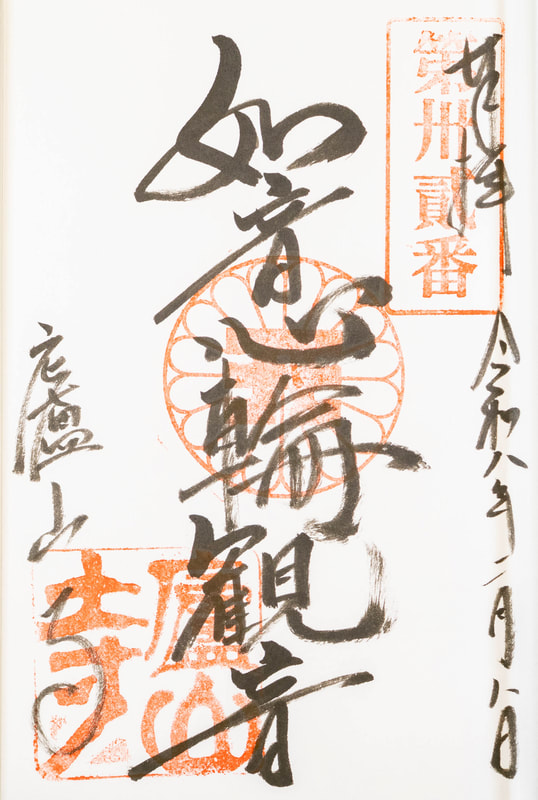 奉拝
第卅貳番
令和八年二月八日
如意輪観音
廬山寺
廬山寺